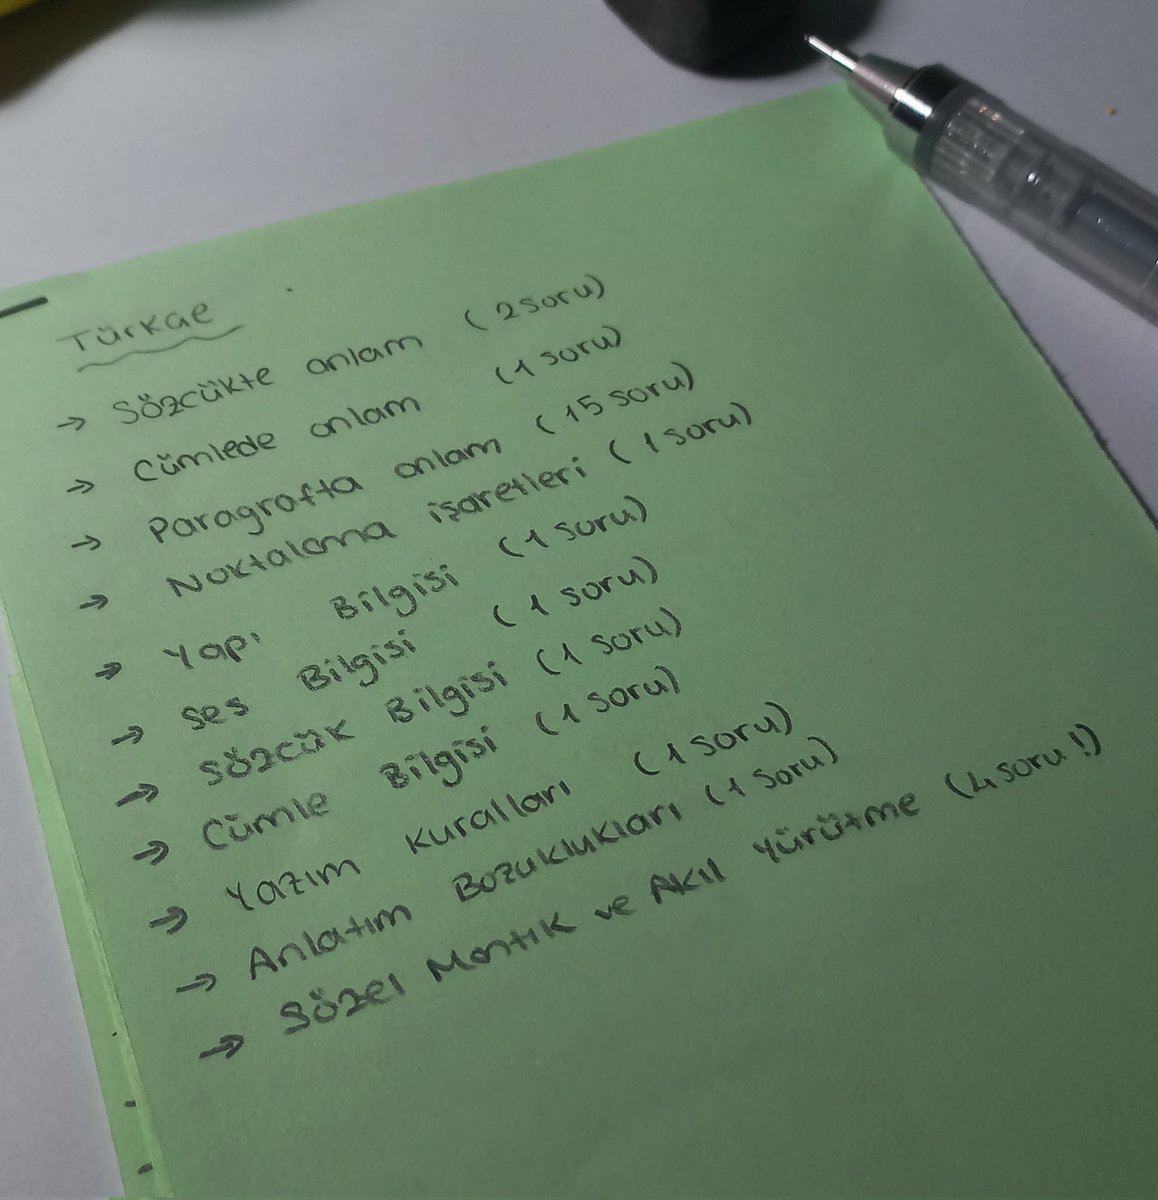 Türkçe
→ Sözcükte anlam (2 soru)
→ Cümlede anlam (1 soru)
→ Paragrafta anlam (15 soru)
→ Noktalama işaretleri (1 soru)
→ Yapı Bilgisi (1 soru)
→ Ses Bilgisi (1 soru)
→ Sözcük Bilgisi (1 soru)
→ Cümle Bilgisi (1 soru)
→ Yazım Kuralları (1 soru)
→ Anlatım Bozuklukları (1 soru)
→ Sözel Mantık ve Akıl Yürütme (4 soru!)